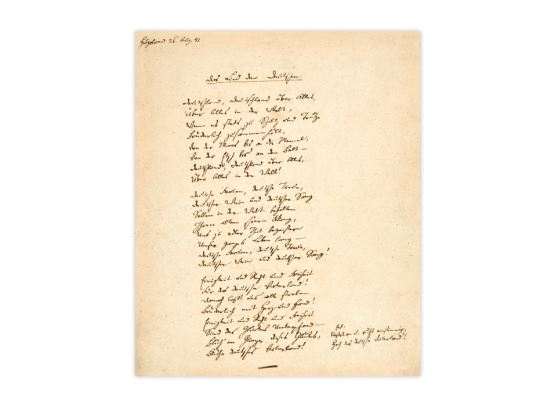 Helgoland 26. Aug. 41.
Das Lied der Deutschen.
Deutschland, Deutschland über Alles,
Über Alles in der Welt,
Wenn es stets zu Schutz und Trutze
Brüderlich zusammenhält,
Von der Maas bis an die Memel,
Von der Etsch bis an den Belt –
Deutschland, Deutschland über Alles,
Über Alles in der Welt!
Deutsche Frauen, deutsche Treue,
Deutscher Wein und deutscher Sang
Sollen in der Welt behalten
Ihren alten schönen Klang,
Uns zu edler That begeistern
Unser ganzes Leben lang –
Deutsche Frauen, deutsche Treue,
Deutscher Wein und deutscher Sang!
Einigkeit und Recht und Freiheit
Für das deutsche Vaterland!
Danach laßt uns alle streben
Brüderlich mit Herz und Hand!
Einigkeit und Recht und Freiheit
Sind des Glückes Unterpfand –
Blüh im Glanze dieses Glückes,
Blühe deutsches Vaterland!
Stoßet an und ruft einstimmig:
Hoch das deutsche Vaterland!